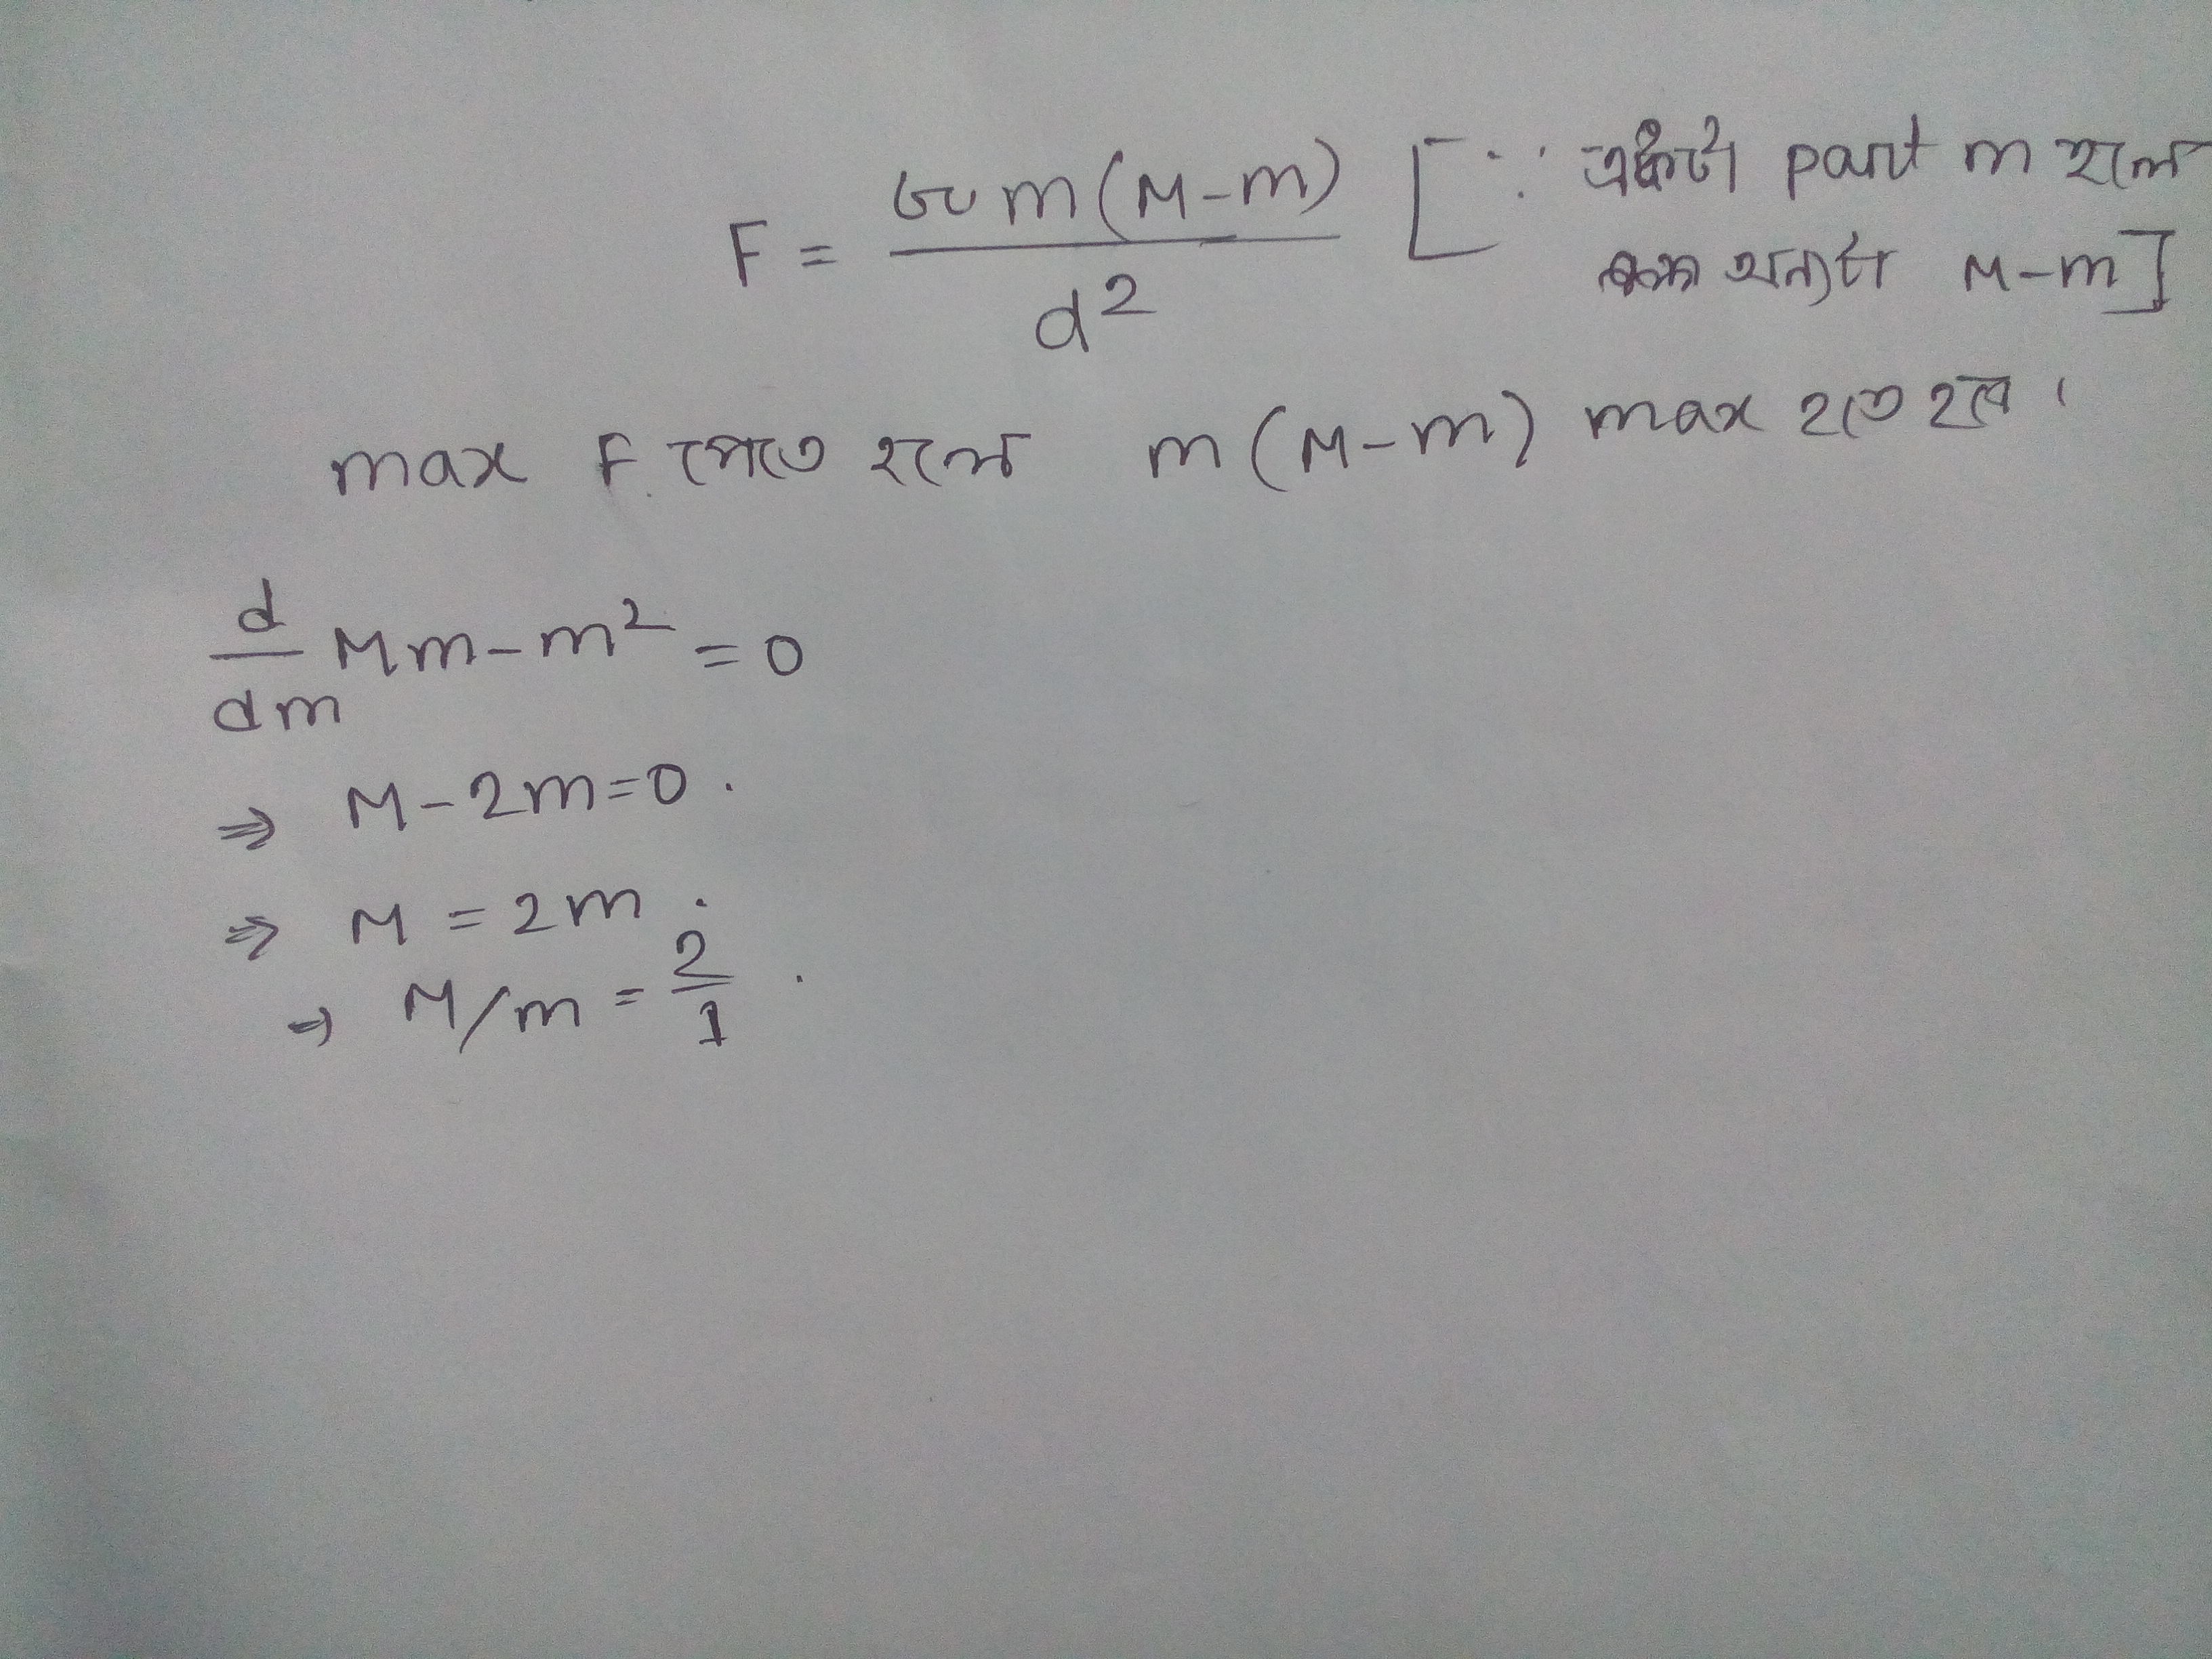 F = Gm(M-m)/d² [∵ একটা part m হলে
অন্যটা M-m]
max F পেতে হলে m(M-m) max হতে হবে।
d/dm Mm-m² = 0
⇒ M-2m=0.
⇒ M = 2m.
⇒ M/m = 2/1.